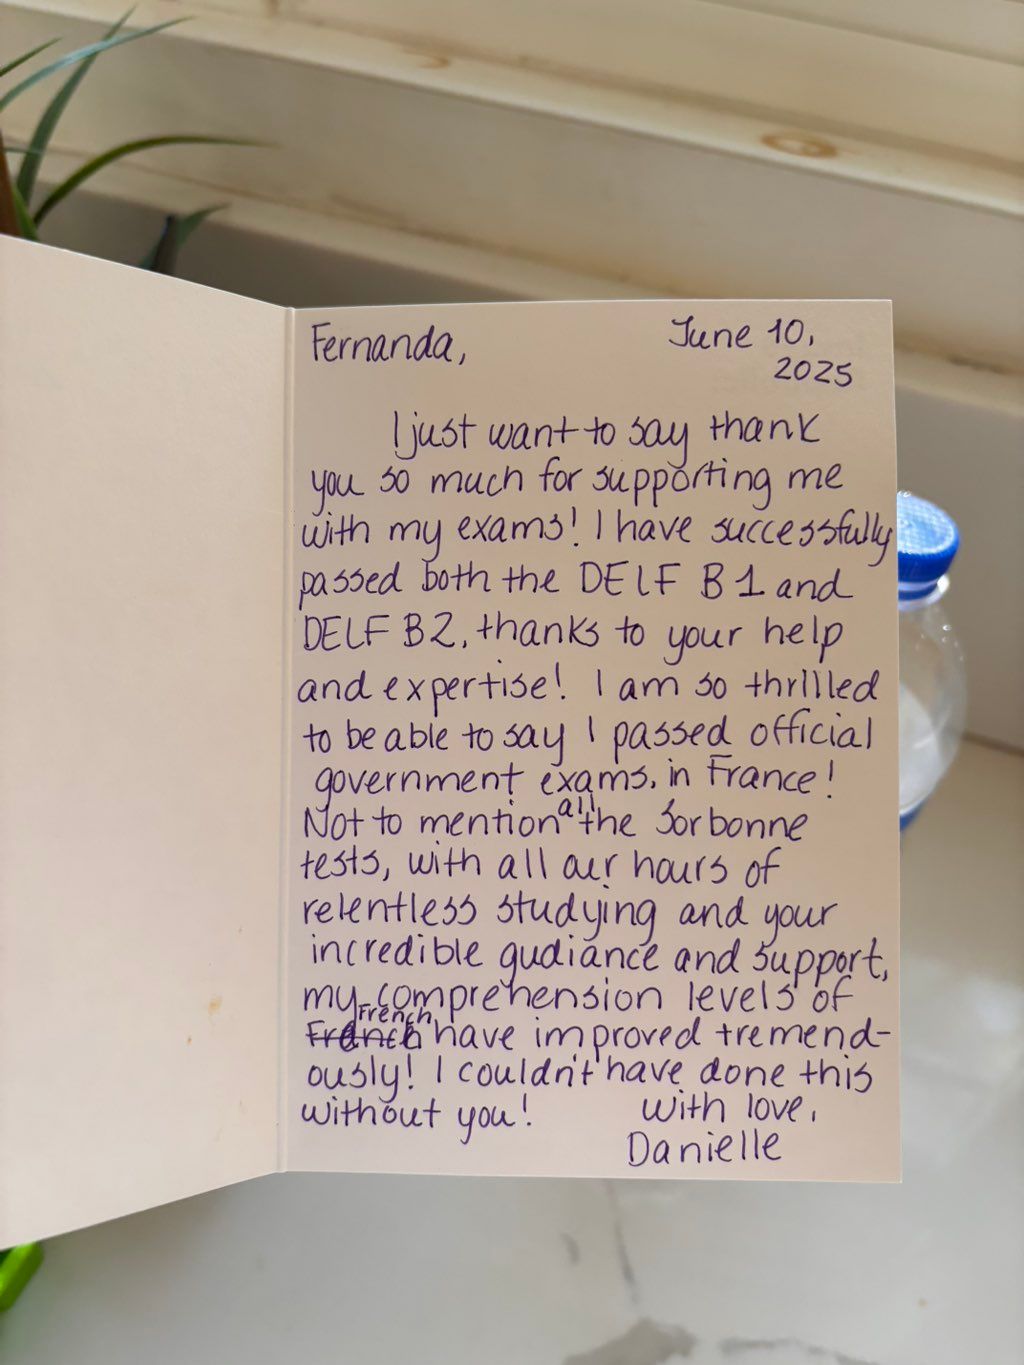 Fernanda,
June 10,
2025
I just want to say thank
you so much for supporting me
with my exams! I have successfully
passed both the DELF B1 and
DELF B2, thanks to your help
and expertise! I am so thrilled
to be able to say I passed official
government exams, in France!
Not to mention all the Sorbonne
tests, with all our hours of
relentless studying and your
incredible gudiance and support,
my comprehension levels of
French have improved tremend-
ously! I couldn't have done this
without you!
With love,
Danielle